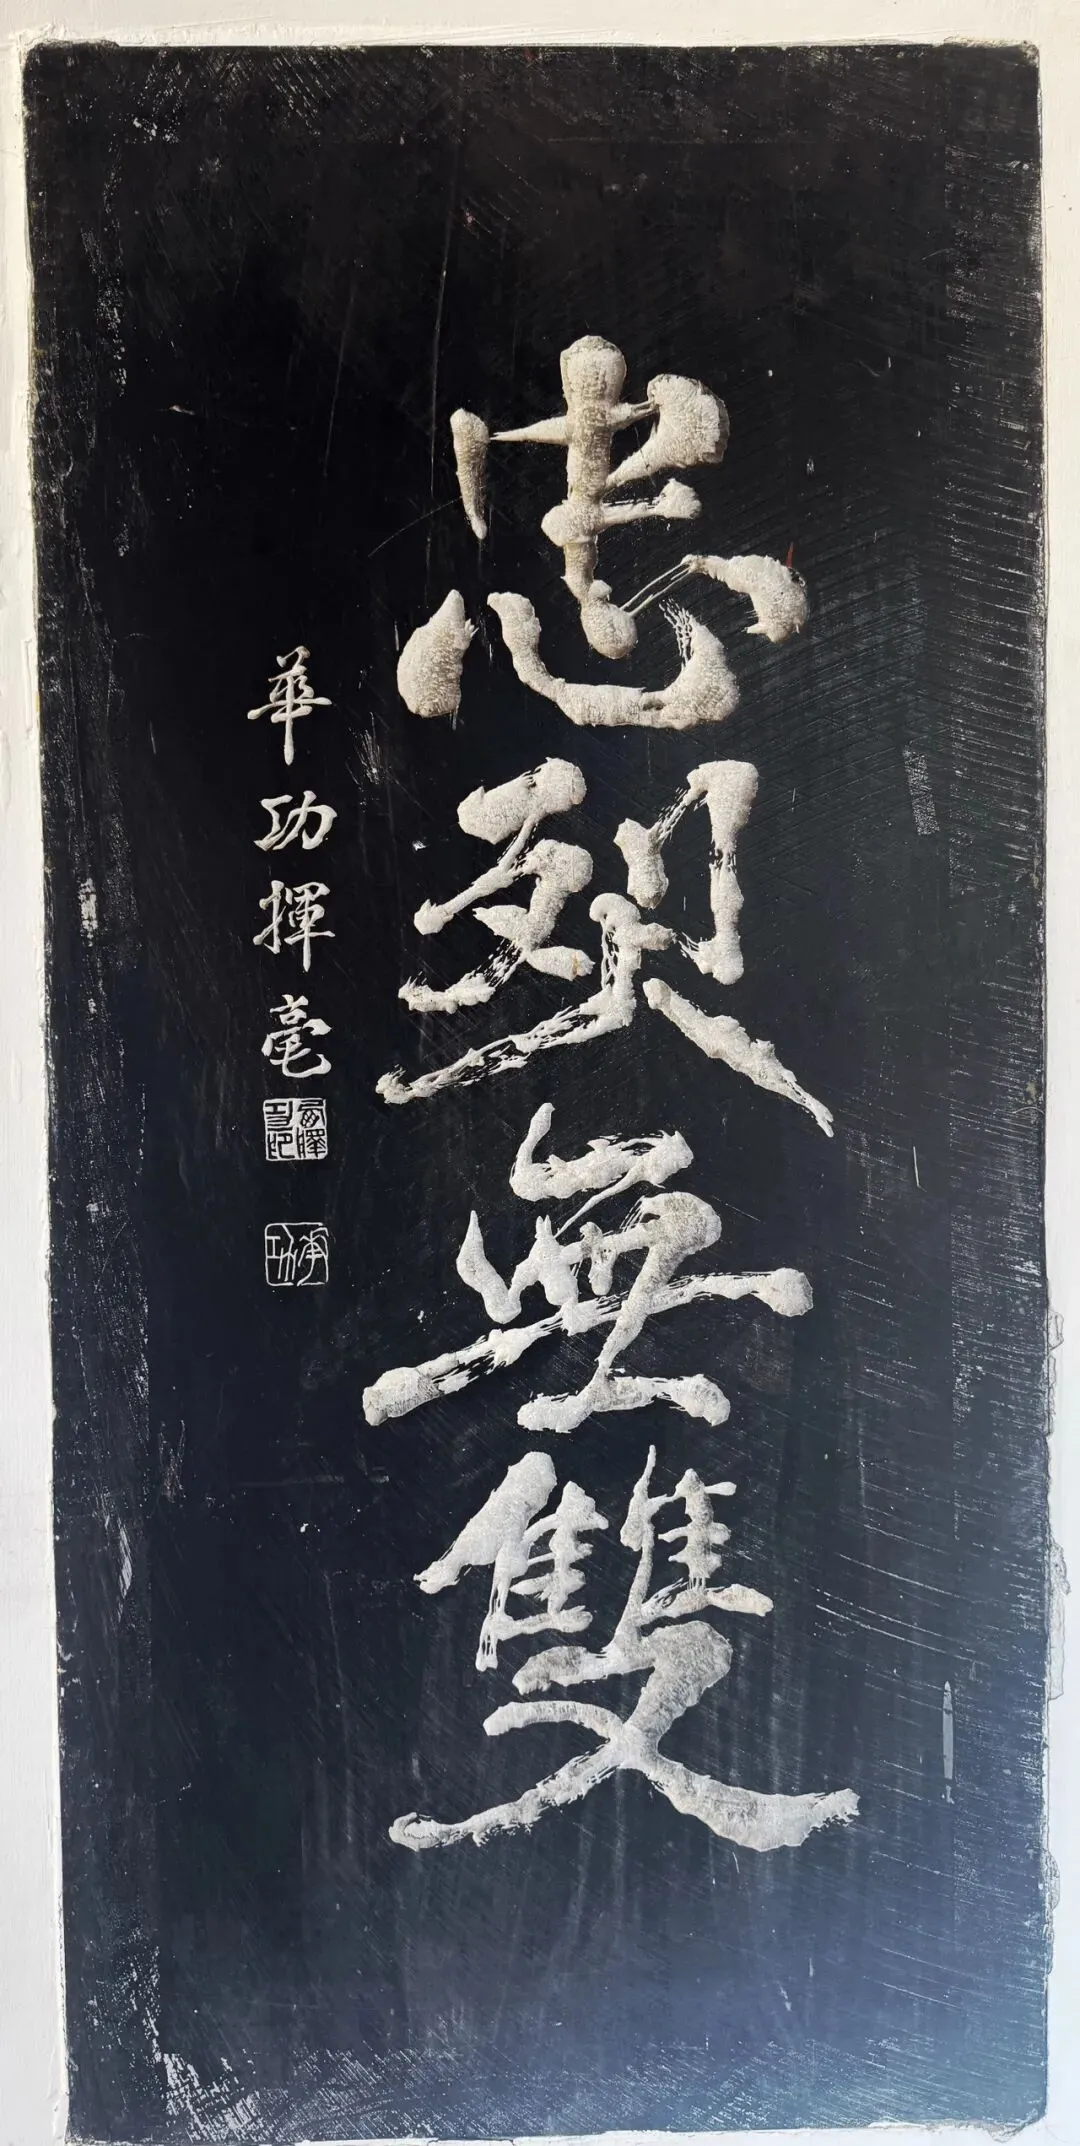 忠烈無雙
華功揮毫